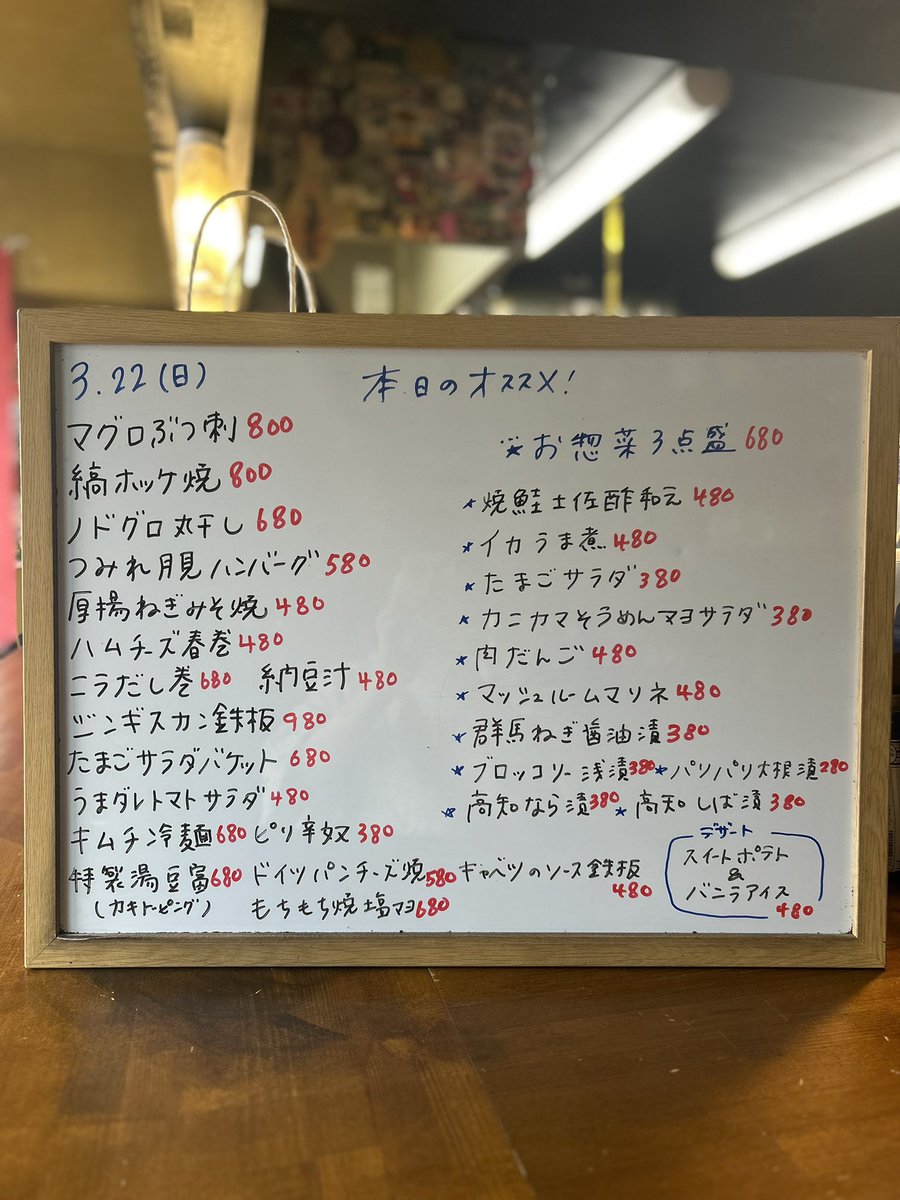 3.22(日)
本日のオススメ!
マグロぶつ刺 800
縞ホッケ焼 800
ノドグロ丸干し 680
つみれ月見ハンバーグ 580
厚揚ねぎみそ焼 480
ハムチーズ春巻 480
ニラだし巻 680 納豆汁 480
ジンギスカン鉄板 980
たまごサラダバケット 680
うまダレトマトサラダ 480
キムチ冷麺 680 ピリ辛奴 380
特製湯豆富 680 ドイツパンチーズ焼 580 キャベツのソース鉄板 480
(カキトーピング) もちもち焼塩マヨ 680
★お惣菜3点盛 680
★焼鮭土佐酢和え 480
★イカうま煮 480
★たまごサラダ 380
★カニカマそうめんマヨサラダ 380
★肉だんご 480
★マッシュルームマリネ 480
★群馬ねぎ醤油漬 380
★ブロッコリー浅漬 380 ★パリパリ大根漬 280
★高知なら漬 380 ★高知しば漬 380
デザート
スイートポテト
&
バニラアイス
480